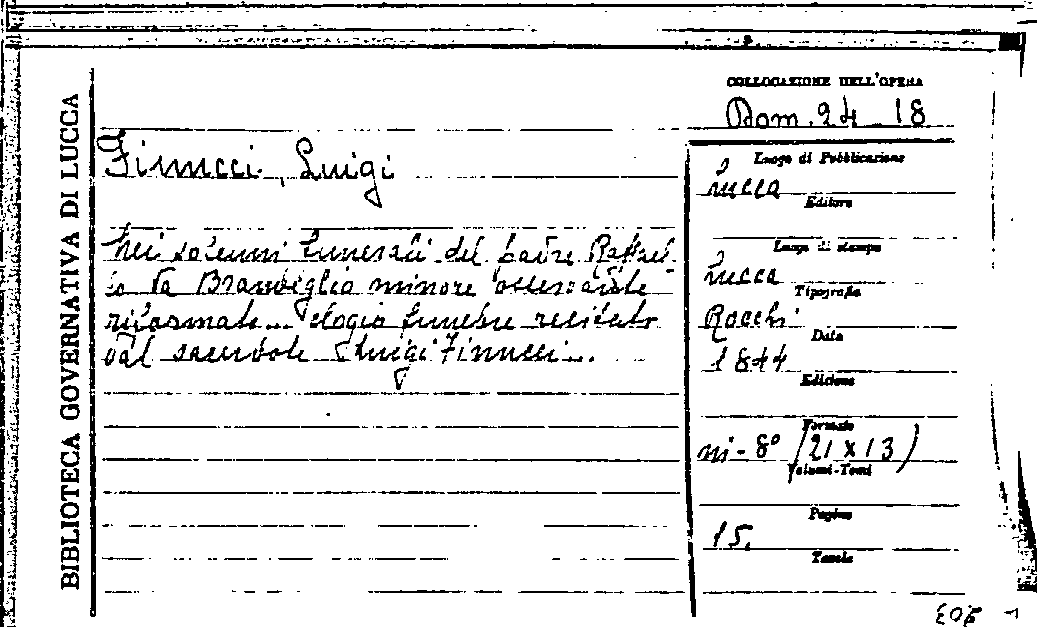 BIBLIOTECA GOVERNATIVA DI LUCCA
COLLOCAZIONE DELL'OPERA
Dom. 24 18
Finucci, Luigi
Nei solenni funerali del padre Raffael-
lo da Brandeglio minore osservante
riformato... elogio funebre recitato
dal sacerdote Luigi Finucci...
Luogo di Pubblicazione
Lucca
Editore
Luogo di stampa
Lucca
Tipografia
Rocchi
Data
1844
Edizione
Formato
in-8° (21 x 13)
Volumi-Tomi
Pagine
15.
Tavole